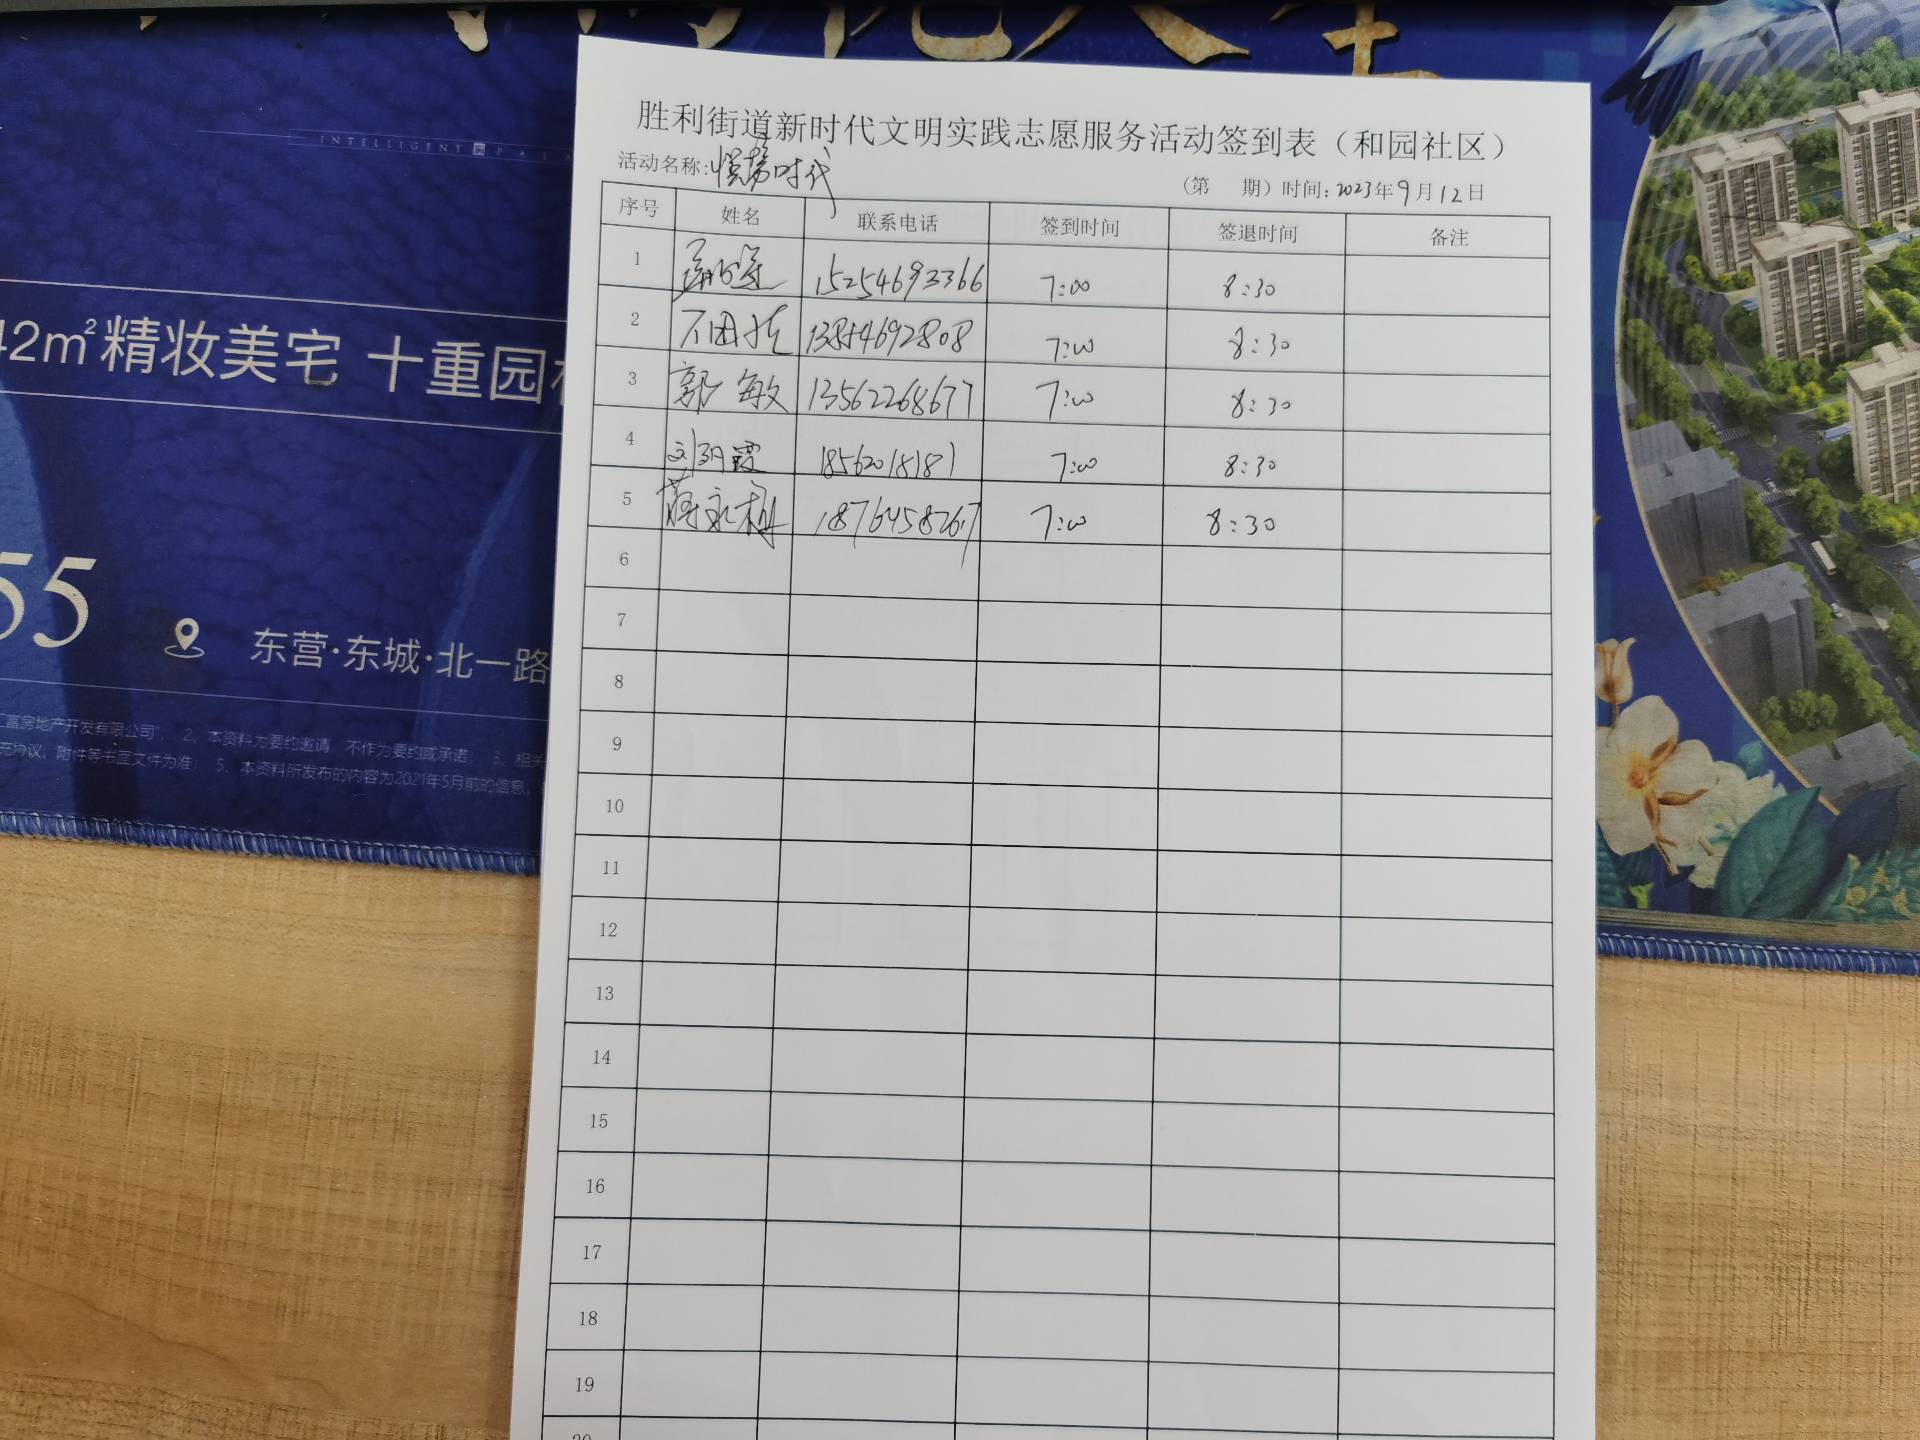 INTELLIGENT PALA
42m²精妆美宅 十重园
55
东营·东城·北一路
富房地产开发有限公司”; 2、本资料为要约邀请，不作为要约或承诺; 3、相关
充协议、附件等书面文件为准; 5、本资料所发布的内容为2021年5月前的信息,
胜利街道新时代文明实践志愿服务活动签到表（和园社区）
活动名称:悦梦时代
（第 期）时间:2023年9月12日
序号 姓名 联系电话 签到时间 签退时间 备注
1 15254693366 7:00 8:30
2 13854692808 7:00 8:30
3 郭敏 13562268677 7:00 8:30
4 刘玥霞 18562018187 7:00 8:30
5 蒋永梅 18764582617 7:00 8:30
6
7
8
9
10
11
12
13
14
15
16
17
18
19
20